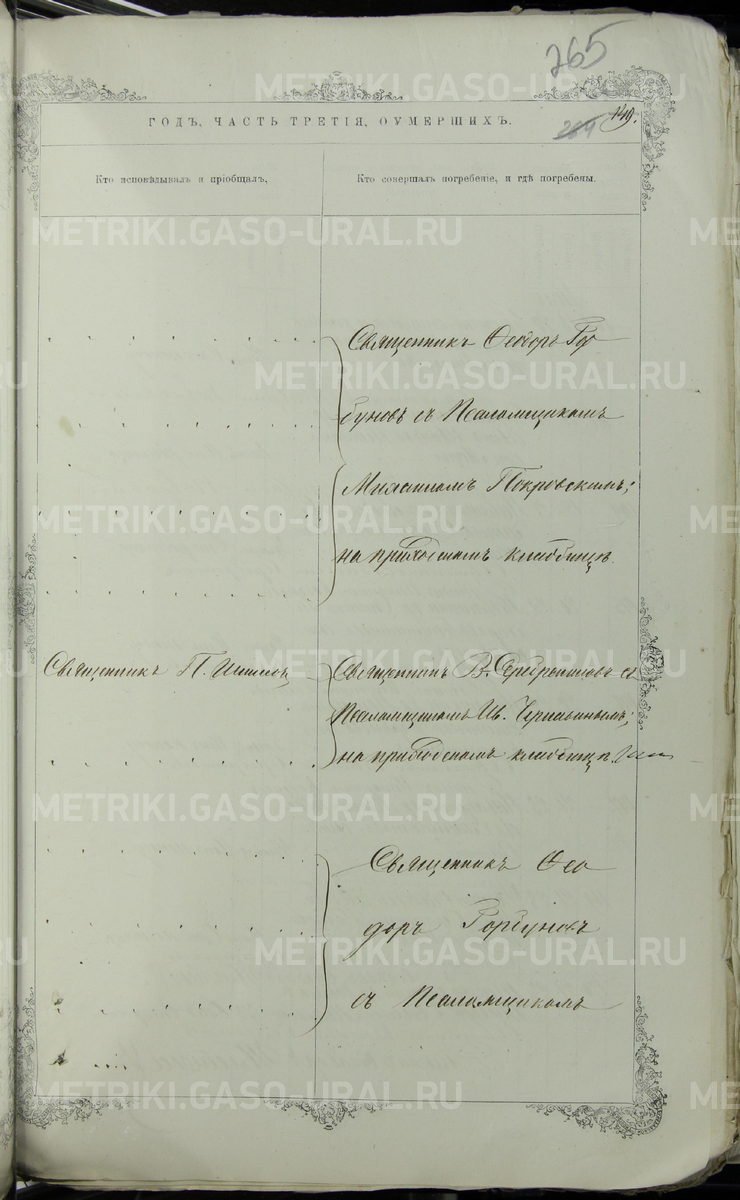 265
149.
264
ГОДЪ, ЧАСТЬ ТРЕТІЯ, ОУМЕРШИХЪ.
Кто исповѣдывалъ и пріобщалъ.
Кто совершалъ погребеніе, и гдѣ погребены.
Священникъ Ѳеодоръ Гор
буновъ съ Псаломщикомъ
Покровскимъ;
на приходскомъ кладбищѣ.
Священникъ П.
Священникъ В. Серебренниковъ съ
Псаломщикомъ Ив.
на приходскомъ кладбищѣ.
Священникъ Ѳео
доръ Горбуновъ
съ Псаломщикомъ
METRIKI.GASO-URAL.RU